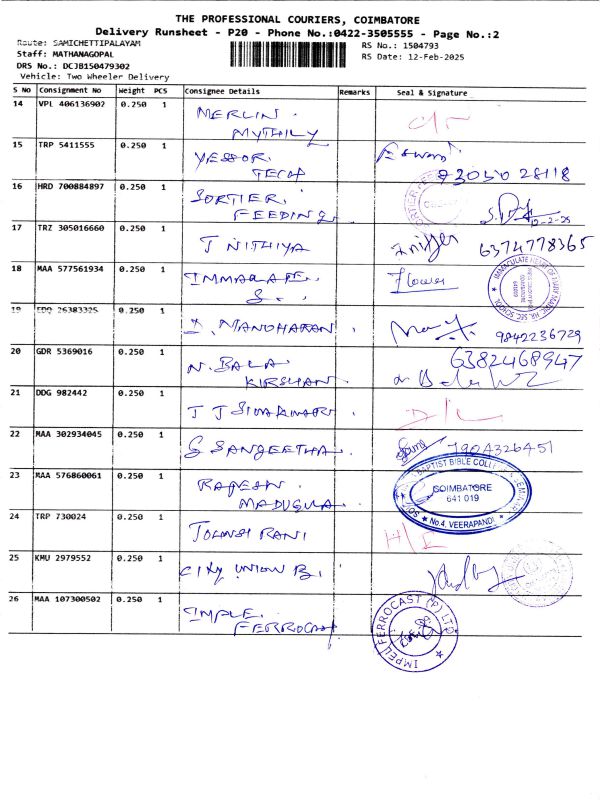 THE PROFESSIONAL COURIERS, COIMBATORE
Delivery Runsheet - P20 - Phone No.:0422-3505555 - Page No.:2
Route: SAMICHETTIPALAYAM
Staff: MATHANAGOPAL
DRS No.: DCJB150479302
Vehicle: Two Wheeler Delivery
RS No.: 1504793
RS Date: 12-Feb-2025
S No Consignment No Weight PCS Consignee Details Remarks Seal & Signature
14 VPL 406136902 0.250 1 MERLIN.
MYTHILY
15 TRP 5411555 0.250 1 YESSOR
TECH
73050 28118
16 HRD 700884897 0.250 1 SORTIER
FEEDING
12-2-25
17 TRZ 305016660 0.250 1 J NITHIYA 6374778365
18 MAA 577561934 0.250 1 Flower
IMMACULATE HEART OF MARY MATRIC HR. SEC SCHOOL
19 EDQ 26383325 0.250 1 I. MANOHARAN 9842236729
20 GDR 5369016 0.250 1 N. BALA
KIRSHAN
6382468947
21 DDG 982442 0.250 1 D/L
22 MAA 302934045 0.250 1 G SANGEETHA 7904326451
23 MAA 576860061 0.250 1 RAJESH
MADUGULA
BAPTIST BIBLE COLLEGE
COIMBATORE
641 019
No.4, VEERAPANDI
24 TRP 730024 0.250 1 TOLINSI RANI
25 KMU 2979552 0.250 1 CITY UNION B.
26 MAA 107300502 0.250 1 IMPLE.
FERROCAST
IMPEL FERROCAST (P) LTD